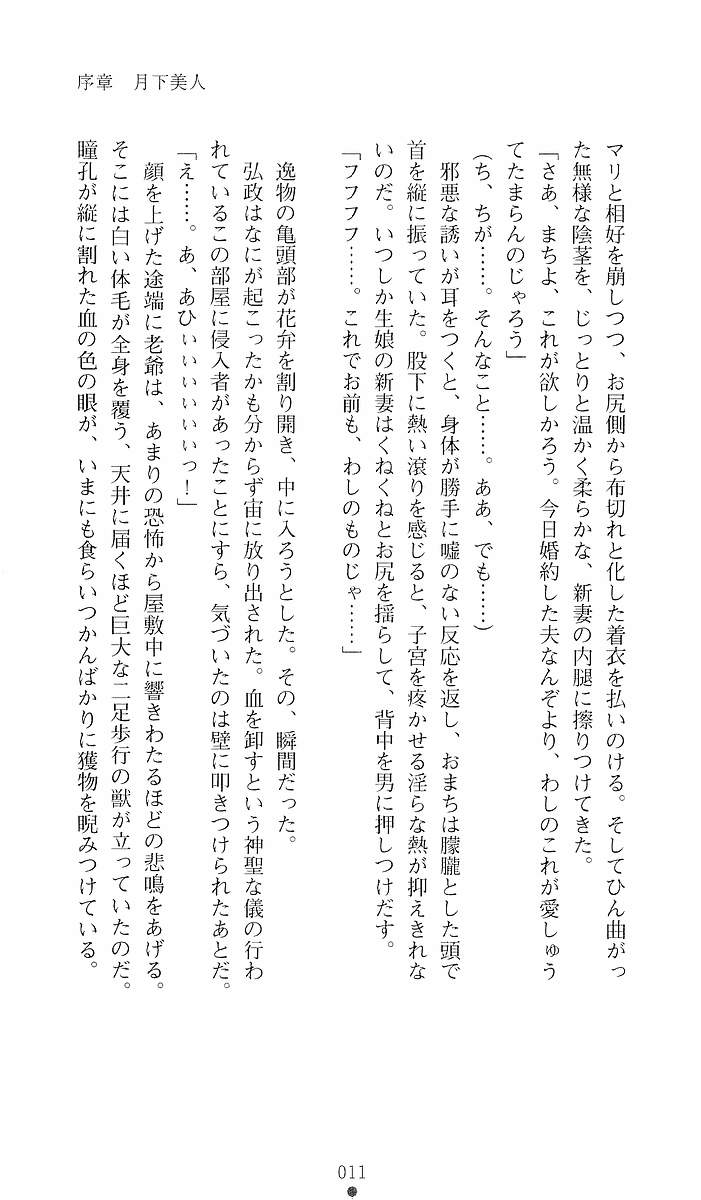 序章　月下美人
マリと相好を崩しつつ、お尻側から布切れと化した着衣を払いのける。そしてひん曲がっ
た無様な陰茎を、じっとりと温かく柔らかな、新妻の内腿に擦りつけてきた。
「さあ、まちよ、これが欲しかろう。今日婚約した夫なんぞより、わしのこれが愛しゅう
てたまらんのじゃろう」
（ち、ちが……。そんなこと……。ああ、でも……）
邪悪な誘いが耳をつくと、身体が勝手に嘘のない反応を返し、おまちは朦朧とした頭で
首を縦に振っていた。股下に熱い滾りを感じると、子宮を疼かせる淫らな熱が抑えきれな
いのだ。いつしか生娘の新妻はくねくねとお尻を揺らして、背中を男に押しつけだす。
「フフフフ……。これでお前も、わしのものじゃ……」
逸物の亀頭部が花弁を割り開き、中に入ろうとした。その、瞬間だった。
弘政はなにが起こったかも分からず宙に放り出された。血を卸すという神聖な儀の行わ
れているこの部屋に侵入者があったことにすら、気づいたのは壁に叩きつけられたあとだ。
「え……。あ、あひぃぃぃぃぃぃっ！」
顔を上げた途端に老爺は、あまりの恐怖から屋敷中に響きわたるほどの悲鳴をあげる。
そこには白い体毛が全身を覆う、天井に届くほど巨大な二足歩行の獣が立っていたのだ。
瞳孔が縦に割れた血の色の眼が、いまにも食らいつかんばかりに獲物を睨みつけている。
011